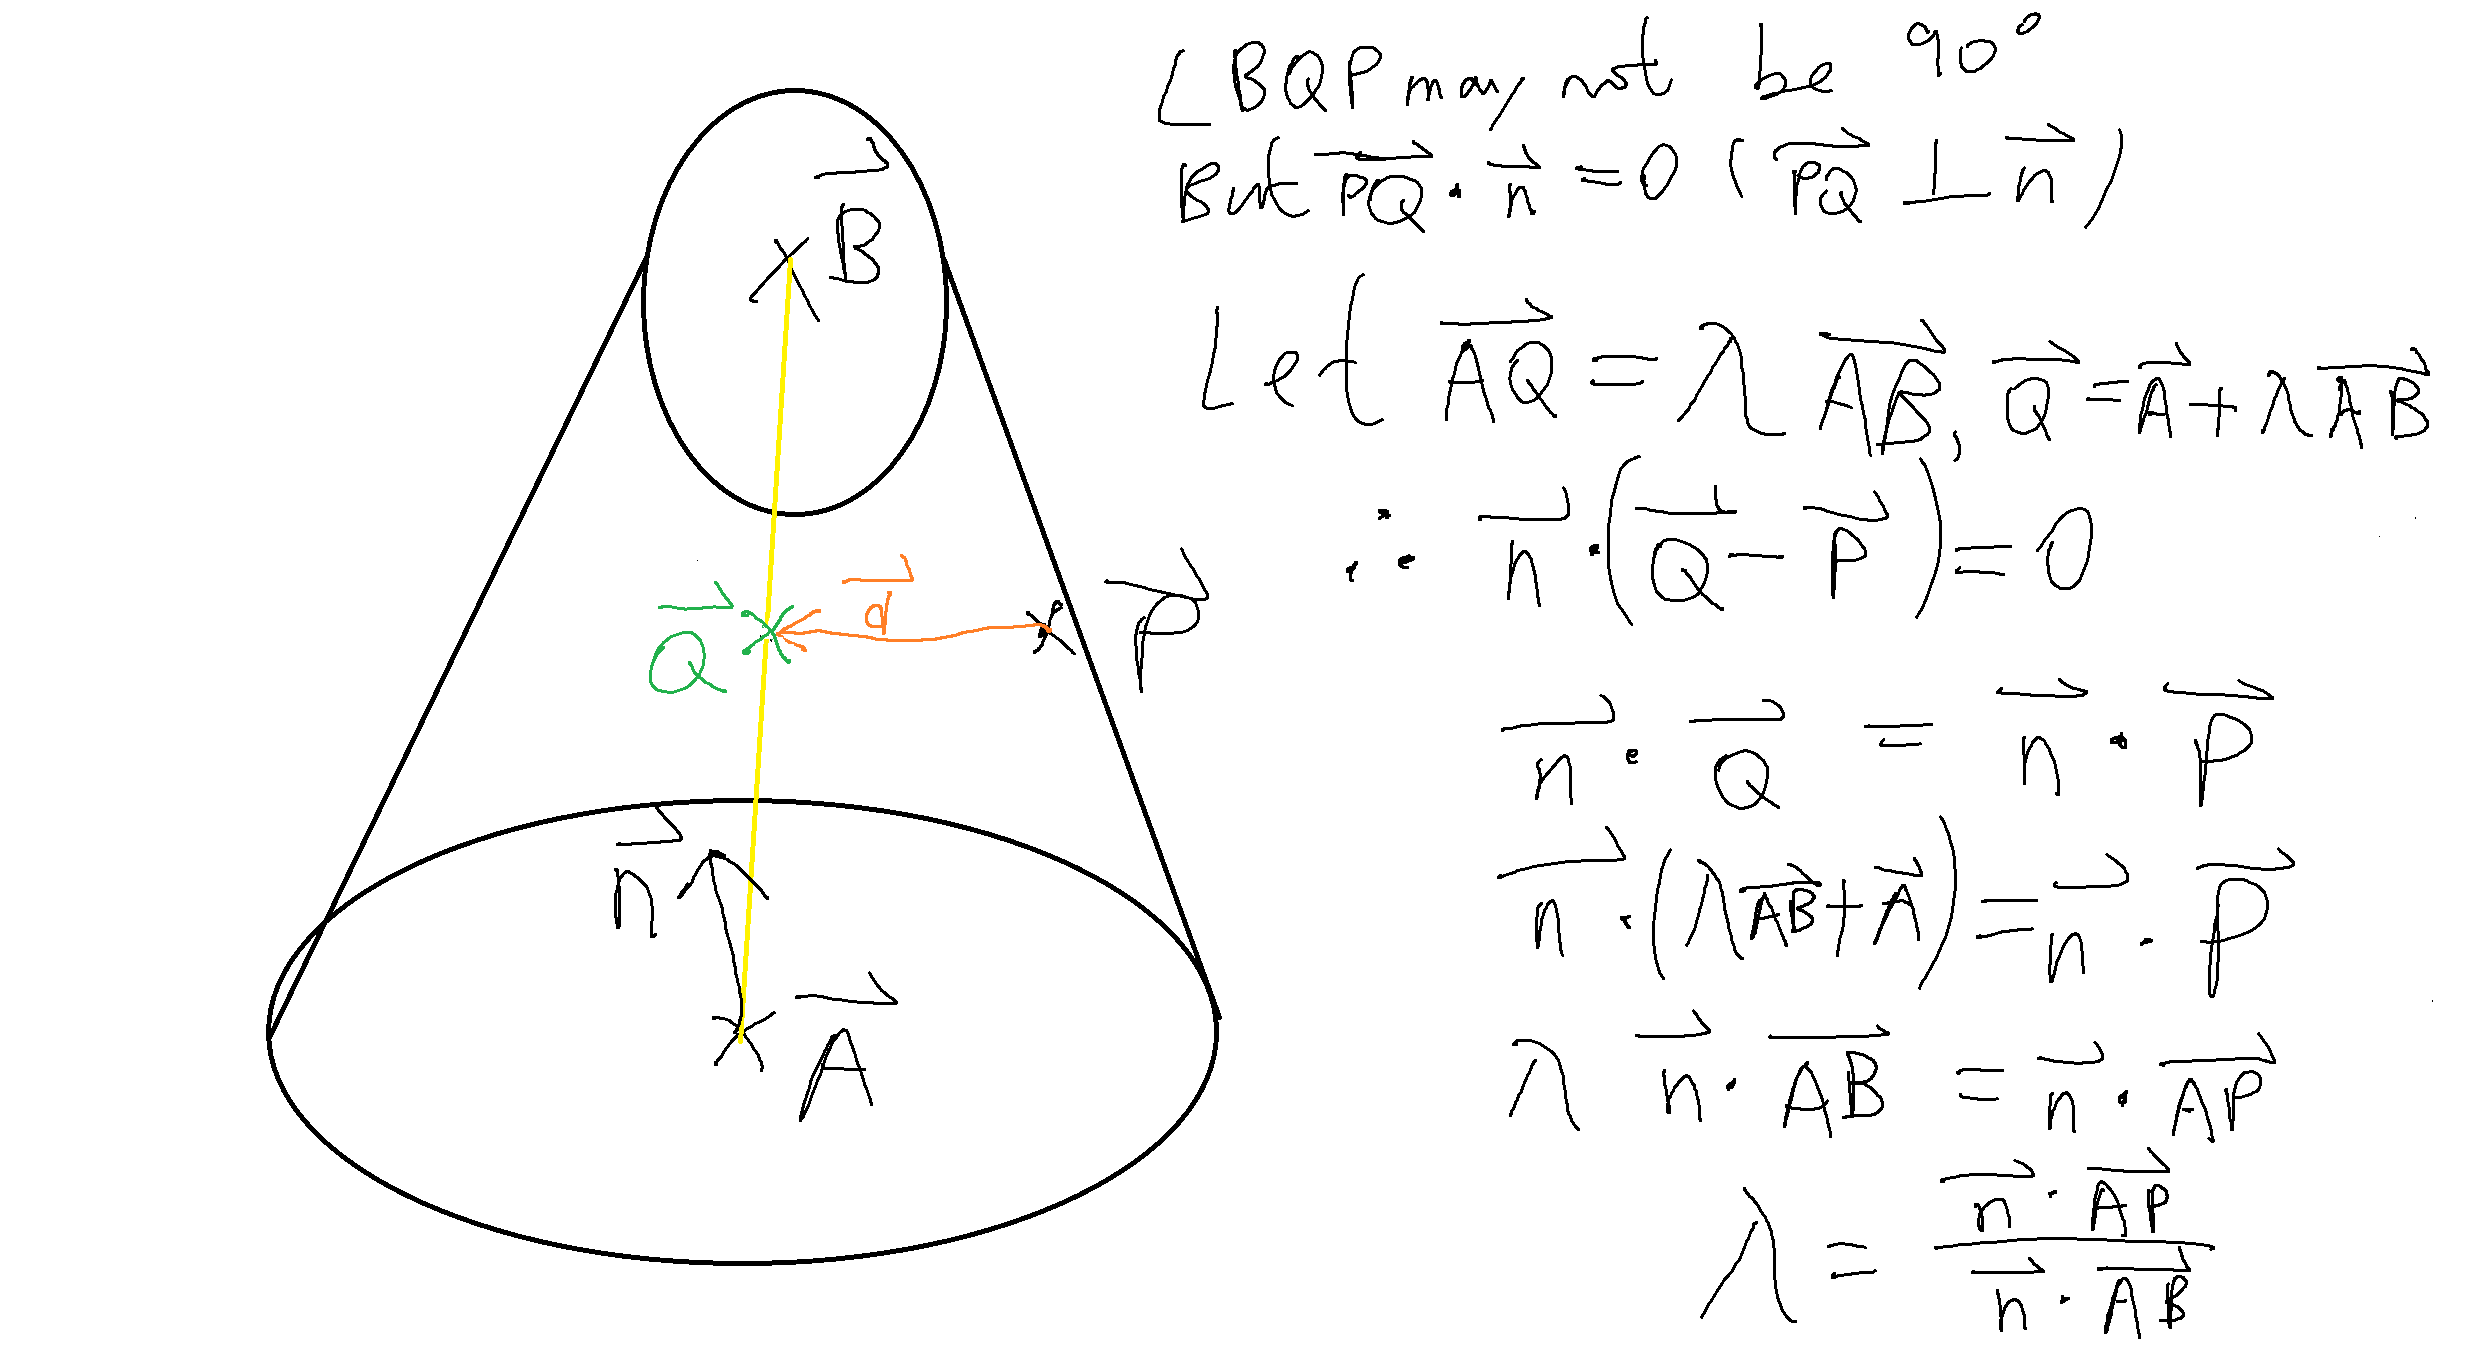 ∠BQP may not be 90°
But \overrightarrow{PQ} · \vec{n} = 0 ( \overrightarrow{PQ} ⊥ \vec{n} )
Let \overrightarrow{AQ} = λ \overrightarrow{AB}, \vec{Q} = \vec{A} + λ \overrightarrow{AB}
∴ \vec{n} · ( \vec{Q} − \vec{P} ) = 0
\vec{n} · \vec{Q} = \vec{n} · \vec{P}
\vec{n} · ( λ \overrightarrow{AB} + \vec{A} ) = \vec{n} · \vec{P}
λ \vec{n} · \overrightarrow{AB} = \vec{n} · \overrightarrow{AP}
λ = \frac{\vec{n} · \overrightarrow{AP}}{\vec{n} · \overrightarrow{AB}}
\vec{B}
\vec{Q}
\vec{d}
\vec{P}
\vec{n}
\vec{A}